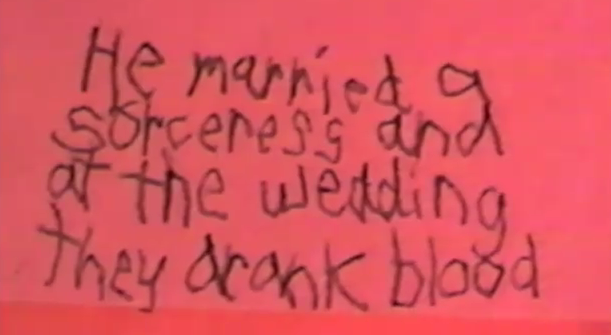 He married a
sorceress and
at the wedding
they drank blood